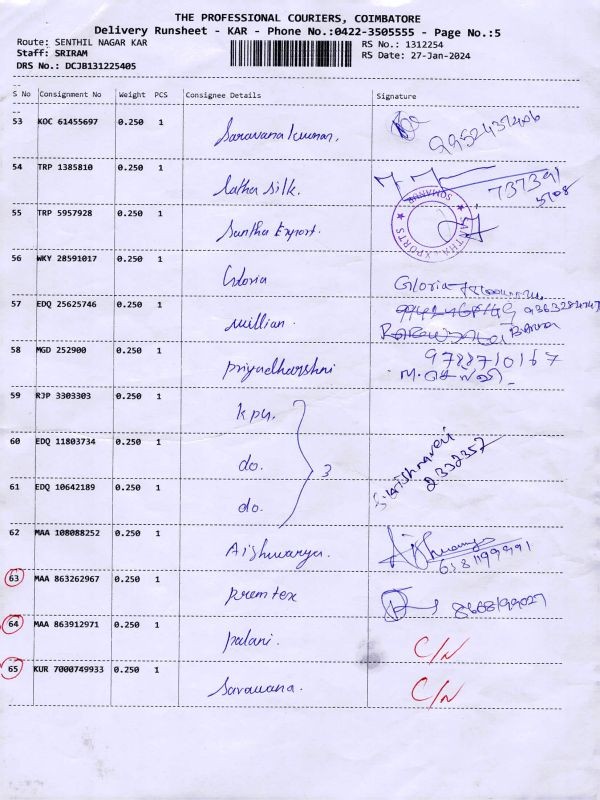 THE PROFESSIONAL COURIERS, COIMBATORE
Delivery Runsheet - KAR - Phone No.:0422-3505555 - Page No.:5
Route: SENTHIL NAGAR KAR
RS No.: 1312254
Staff: SRIRAM
RS Date: 27-Jan-2024
DRS No.: DCJB131225405
S No Consignment No Weight PCS Consignee Details Signature
53 KOC 61455697 0.250 1 Saravanakumar.
54 TRP 1385810 0.250 1 Latha Silk. 737391
5708
55 TRP 5957928 0.250 1 Santha Export. SANTHA EXPORTS
56 WKY 28591017 0.250 1 Gloria Gloria
57 EDQ 25625746 0.250 1 Millian.
58 MGD 252900 0.250 1 Priyadharshni 9788710167
59 RJP 3303303 0.250 1 kpy.
60 EDQ 11803734 0.250 1 do. 3 2332352
61 EDQ 10642189 0.250 1 do.
62 MAA 108088252 0.250 1 Aishwarya.
63 MAA 863262967 0.250 1 Premtex
64 MAA 863912971 0.250 1 Palani. C/N
65 KUR 7000749933 0.250 1 Saravana. C/N